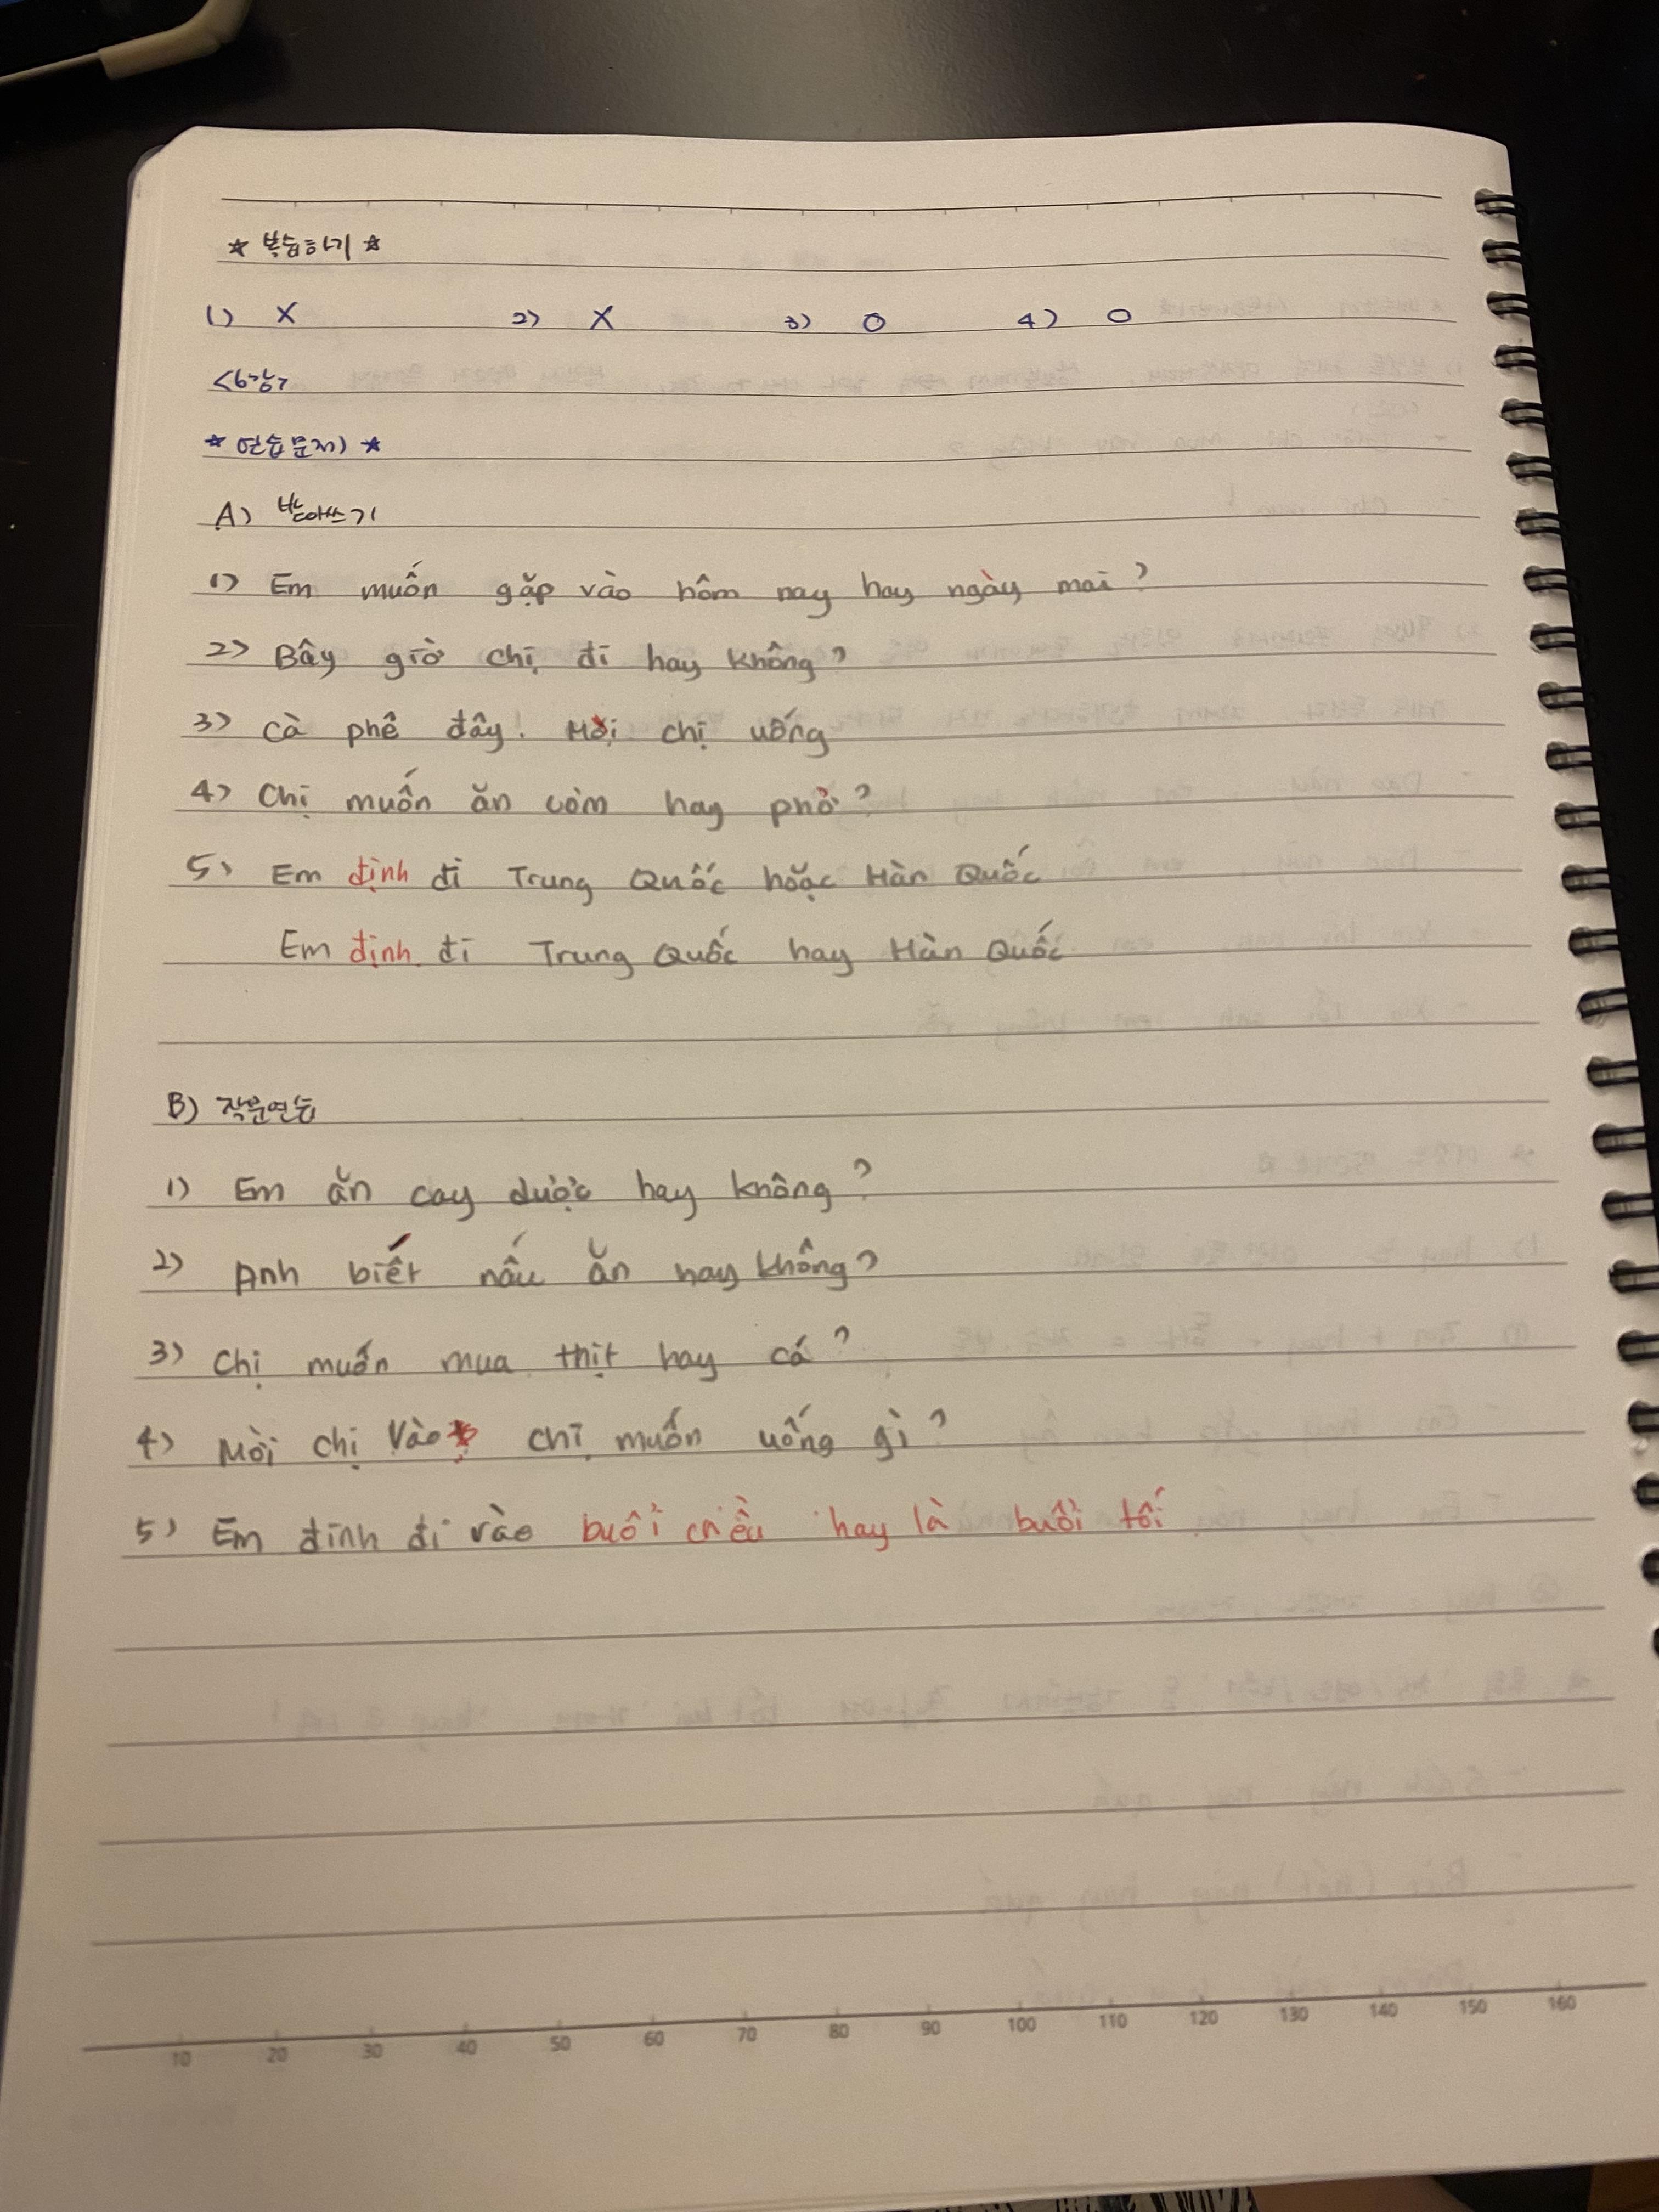 ★ 복습하기 ★
1) X 2) X 3) O 4) O
<6강>
★ 연습문제 ★
A) 받아쓰기
1) Em muốn gặp vào hôm nay hay ngày mai?
2) Bây giờ chị đi hay không?
3) cà phê đây! Mời chị uống
4) Chị muốn ăn cơm hay phở?
5) Em định đi Trung Quốc hoặc Hàn Quốc
Em định đi Trung Quốc hay Hàn Quốc
B) 작문연습
1) Em ăn cay được hay không?
2) Anh biết nấu ăn hay không?
3) Chị muốn mua thịt hay cá?
4) Mời chị vào, chị muốn uống gì?
5) Em định đi vào buổi chiều hay là buổi tối
10 20 30 40 50 60 70 80 90 100 110 120 130 140 150 160